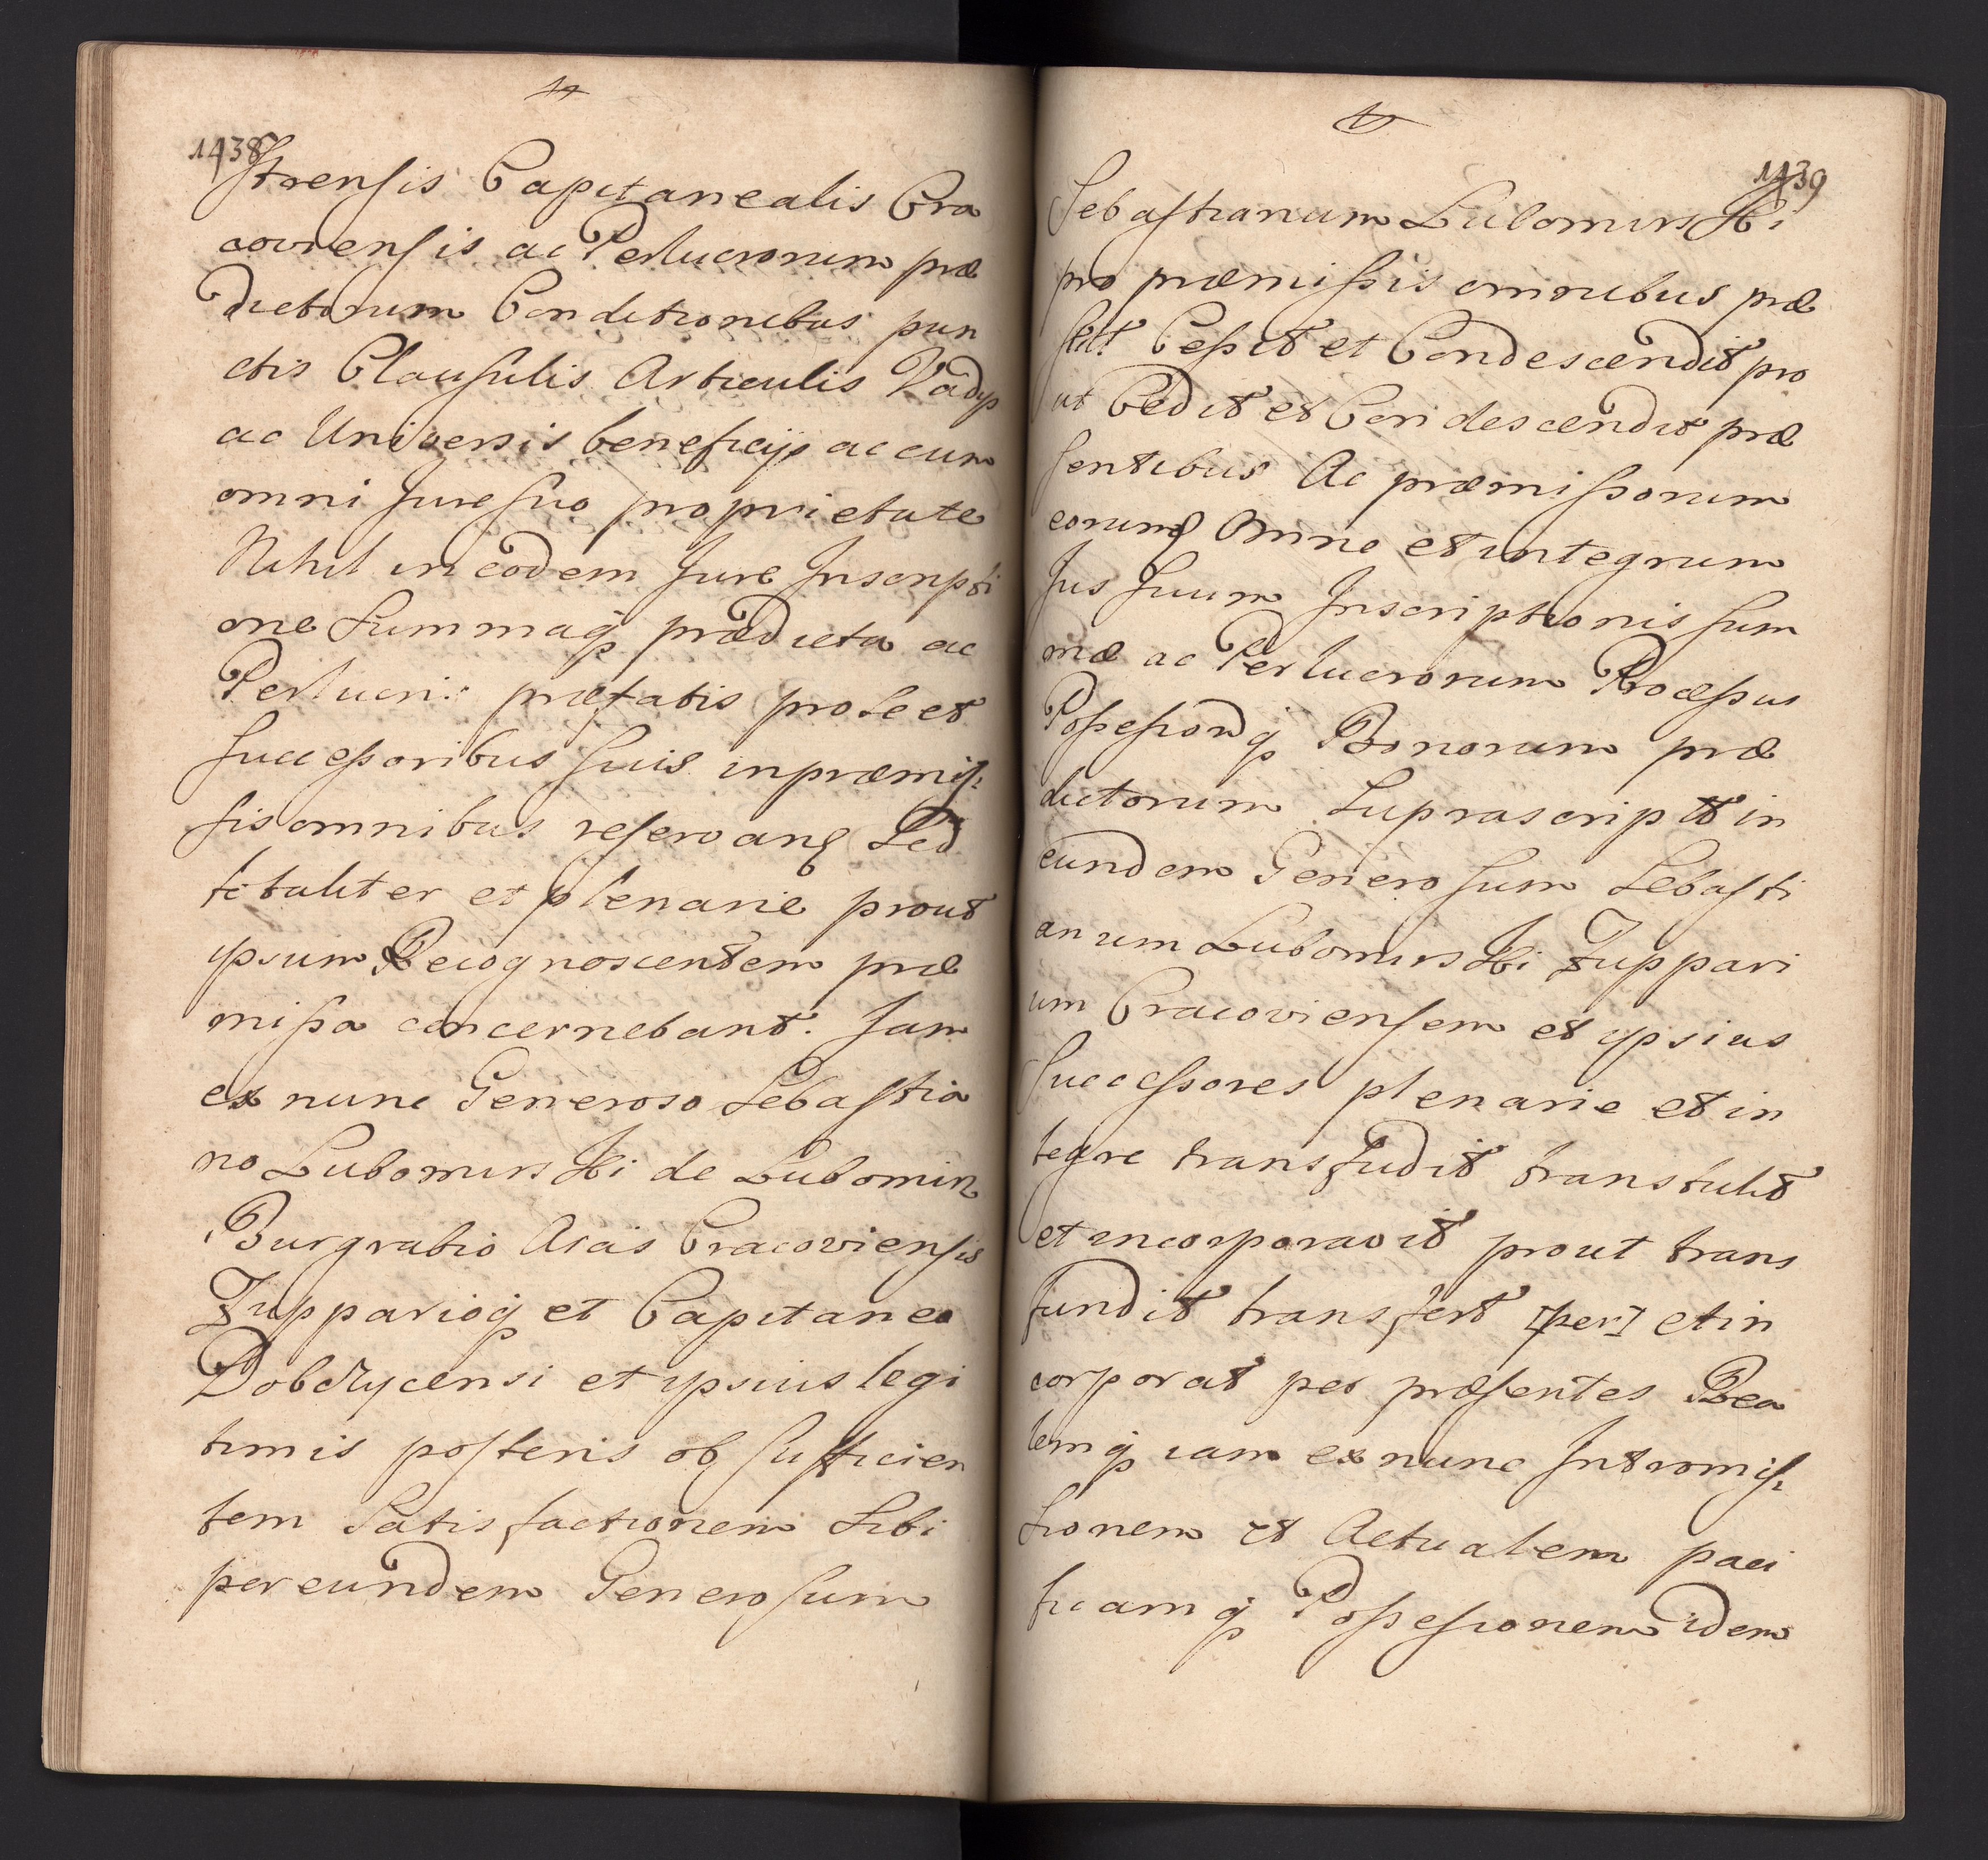 1438
strensis Capitanealis Cra
coviensis ac Perlucrorum præ
dictorum Conditionibus pun
ctis Clausulis Articulis Vadys
ac Universis beneficijs ac cum
omni Jure suo proprietate
Nihil in eodem Jure Inscripti
one Summaq prædicta ac
Perlucris præfatis pro se et
successoribus suis in præmis:
sis omnibus reservang Sed
totaliter et plenarie prout
ipsum Recognoscentem præ
missa concernebant. Jam
ex nunc Generoso Sebastia
no Lubomirski de Lubomir
Burgrabio Arcis Cracoviensis
Zupparioq et Capitaneo
Dobczycensi et ipsius legi
timis posteris ob sufficien
tem Satisfactionem Sibi
per eundem Generosum
1439
Sebastianum Lubomirski
pro præmissis omnibus præ
stit: Cessit et Condescendit pro
ut Cedit et Condescendit præ
sentibus Ac præmissorum
eorumq Omne et integrum
Jus suum Inscriptionis sum
mæ ac Perlucrorum Processus
Possessionq Bonorum præ
dictorum Suprascript in
eundem Generosum Sebasti
anum Lubomirski Zuppari
um Cracoviensem et ipsius
Successores plenarie et in
tegre transfudit transtulit
et incorporavit prout trans
fundit transfert [per] et in
corporat per præsentes Rea
lemq iam ex nunc Intromis:
sionem et Actualem paci
ficamq Possessionem idem